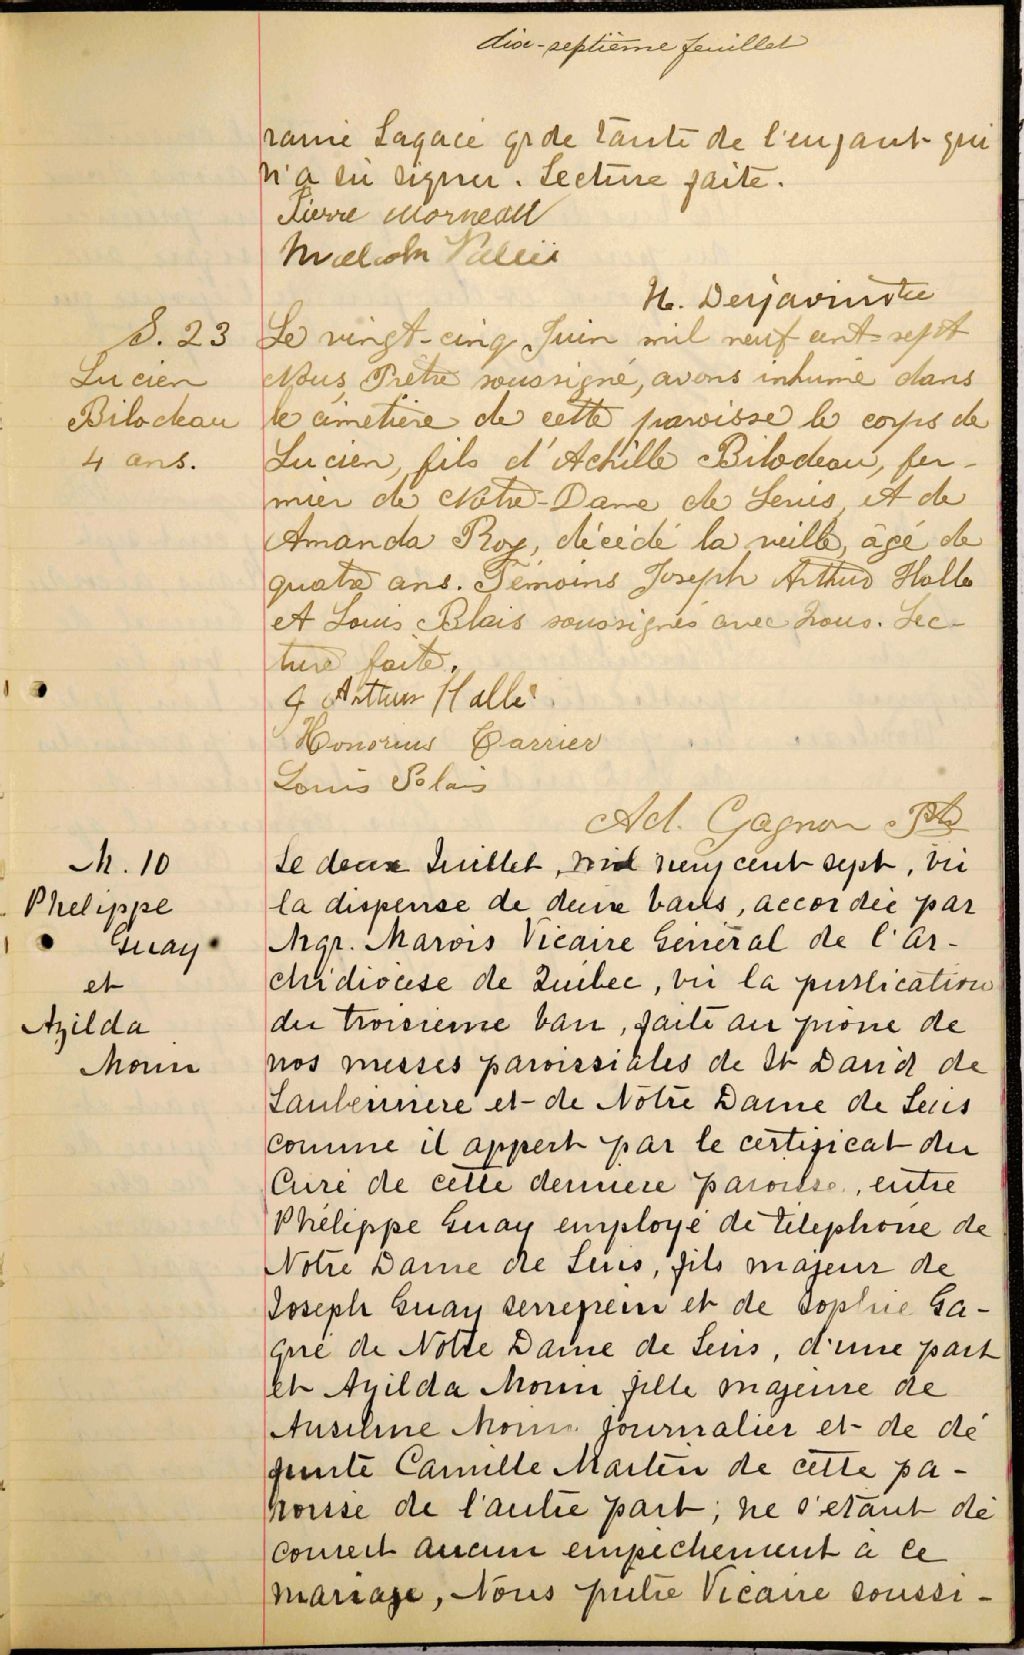 dix-septième feuillet
ramé Lagacé gde tante de l'enfant qui
n'a su signer. Lecture faite.
Pierre Morneau
Malcolm
N. Desjardins Ptre
S. 23
Lucien
Bilodeau
4 ans.
Le vingt-cinq Juin mil neuf cent sept
Nous Prêtre soussigné, avons inhumé dans
le cimetière de cette paroisse le corps de
Lucien, fils d'Achille Bilodeau, fer-
mier de Notre-Dame de Levis, et de
Amanda Roy, décédé la veille, âgé de
quatre ans. Témoins Joseph Arthur Hallé
et Louis Blais soussignés avec nous. Lec-
ture faite.
J Arthur Hallé
Honorius Carrier
Louis Blais
Ad. Gagnon Ptr
M. 10
Phelippe
Guay
et
Azilda
Morin
Le deux Juillet, mil neuf cent sept, vu
la dispense de deux bans, accordée par
Mgr. Marois Vicaire Général de l'Ar-
chidiocèse de Québec, vu la publication
du troisième ban, faite au prône de
nos messes paroissiales de St David de
Lauberivière et de Notre Dame de Levis
comme il appert par le certificat du
Curé de cette dernière paroisse, entre
Phélippe Guay employé de téléphone de
Notre Dame de Levis, fils majeur de
Joseph Guay serrefrein et de Sophie Ga-
gné de Notre Dame de Levis, d'une part
et Azilda Morin fille majeure de
Anselme Morin journalier et de dé
funte Camille Martin de cette pa-
roisse de l'autre part; ne s'étant dé
couvert aucun empêchement à ce
mariage, Nous prêtre Vicaire soussi-